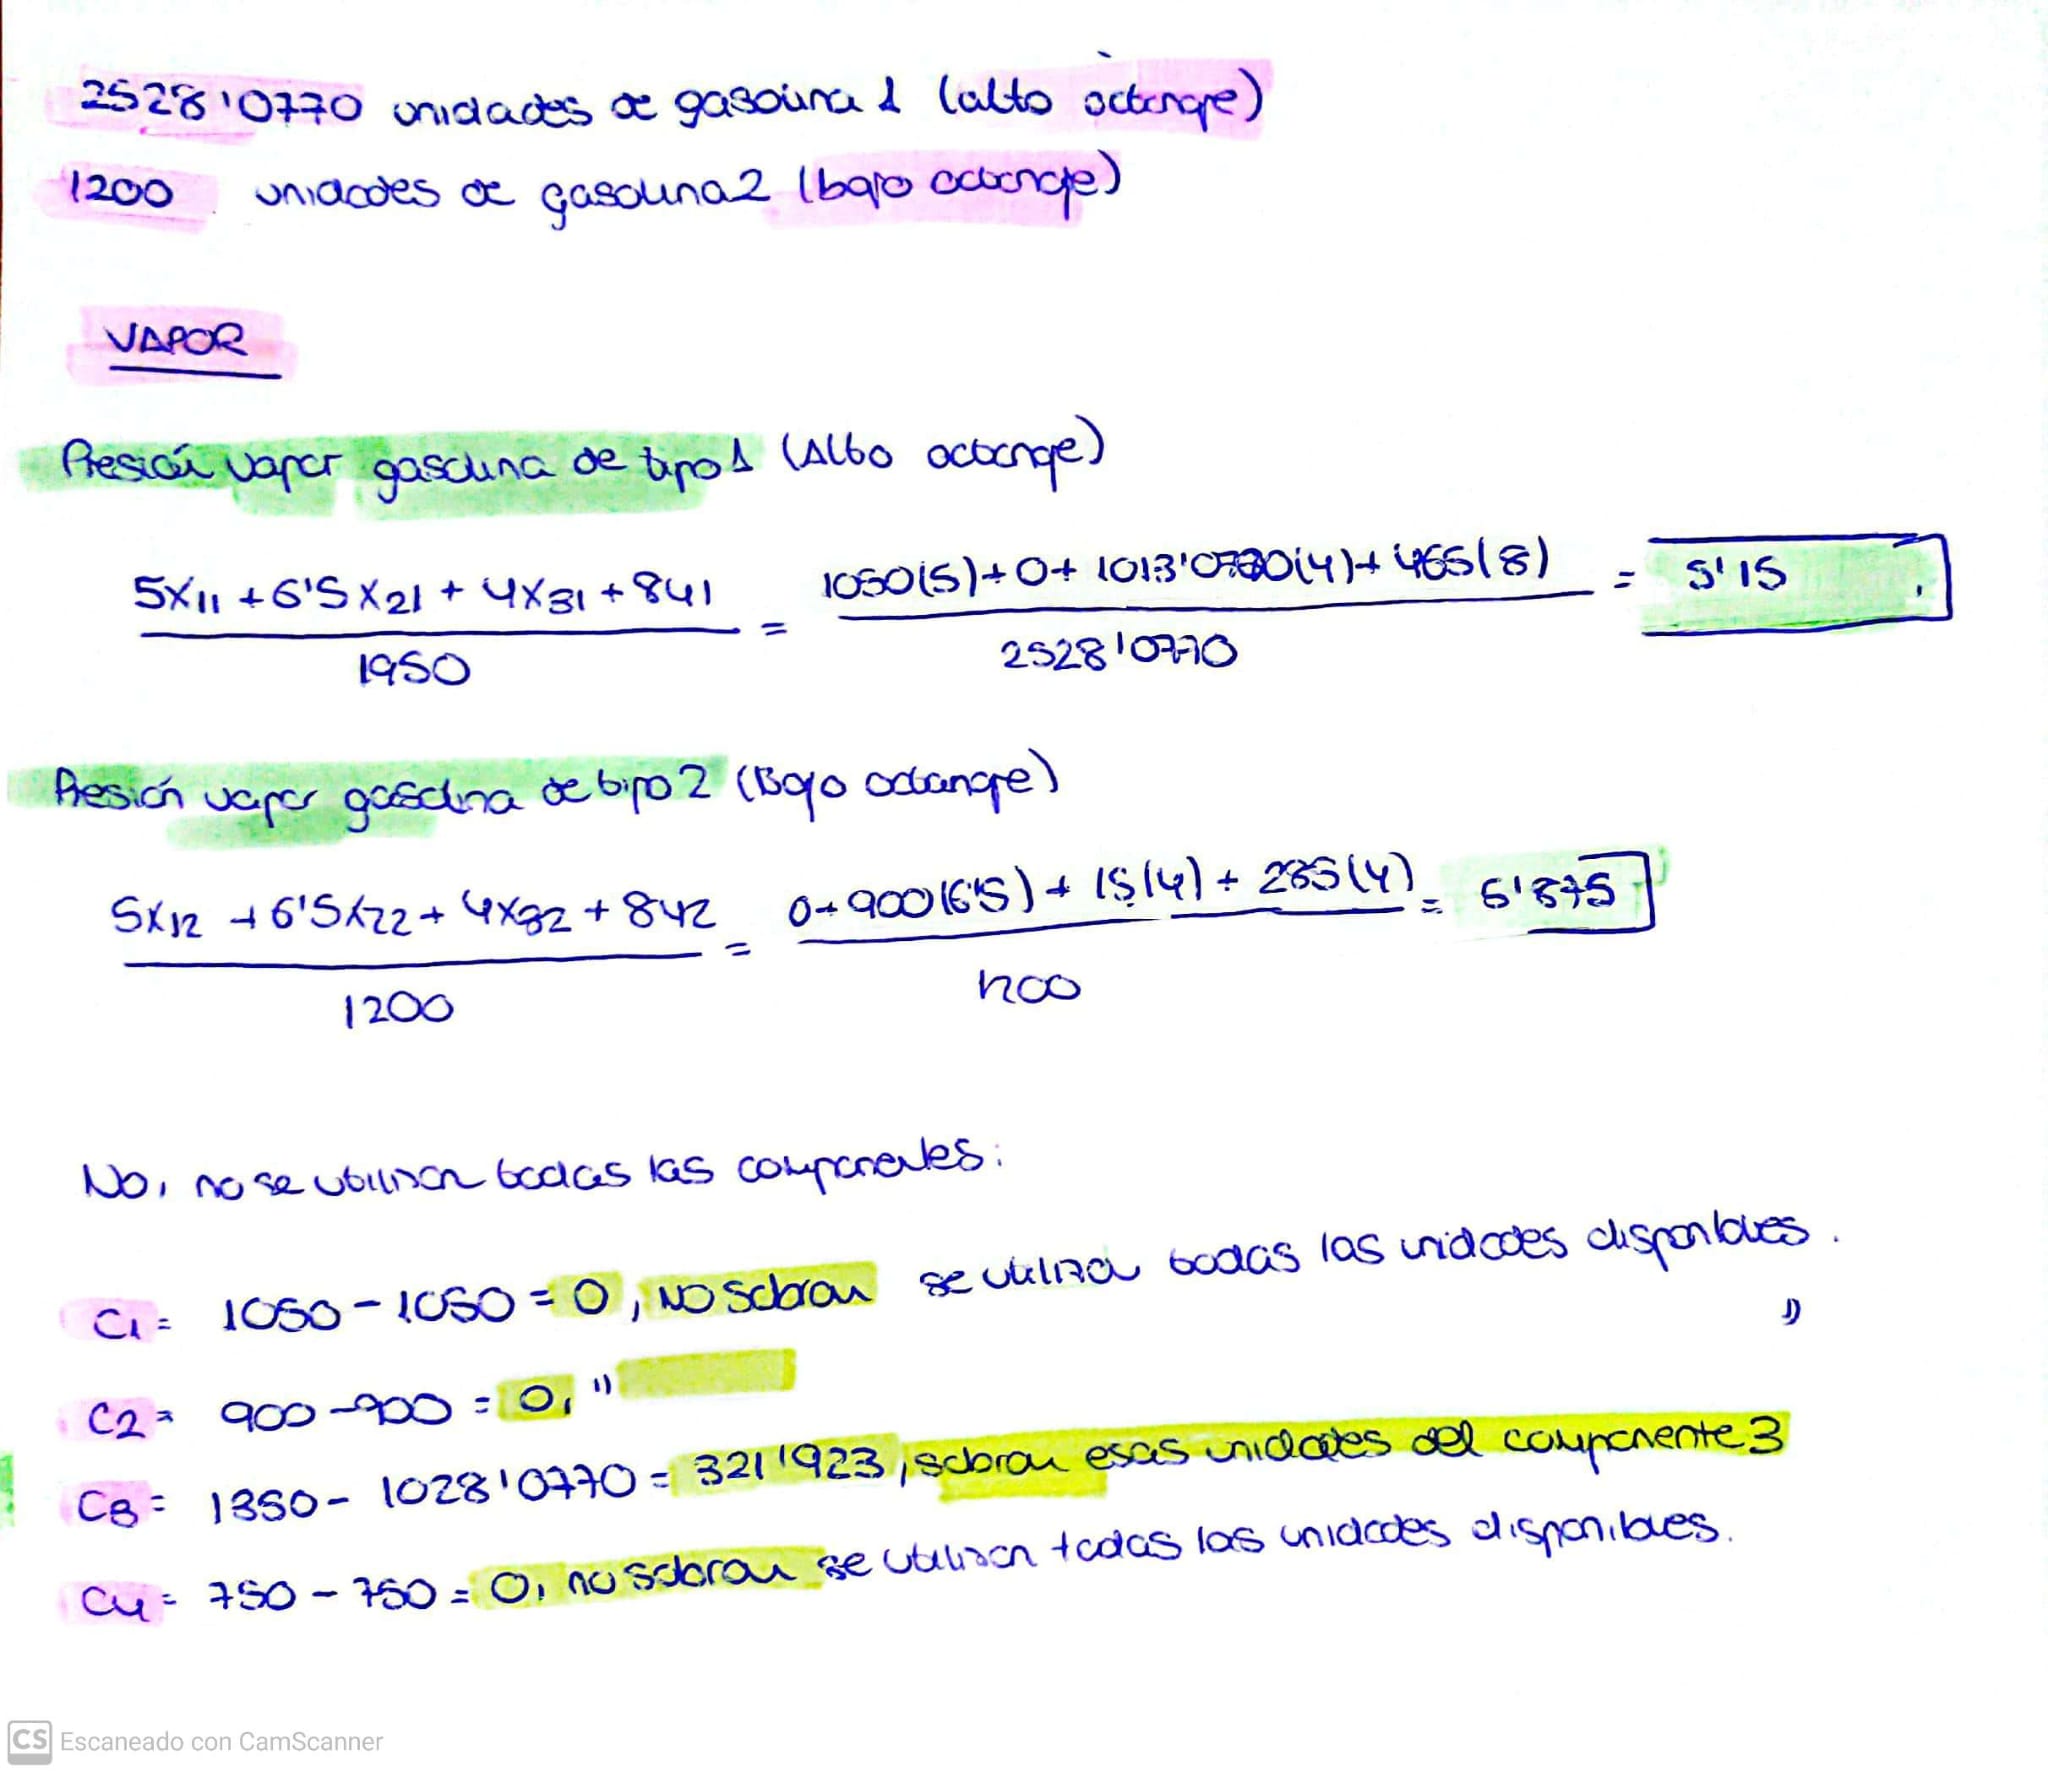 2528'0770 unidades de gasolina 1 (alto octanaje)
1200 unidades de gasolina 2 (bajo octanaje)
VAPOR
Presión vapor gasolina de tipo 1 (Alto octanaje)
5X11 + 6'5X21 + 4X31 + 841 / 1950 = 1050(5) + 0 + 1013'0770(4) + 465(8) / 2528'0770 = 5'15
Presión vapor gasolina de tipo 2 (Bajo octanaje)
5X12 + 6'5X22 + 4X32 + 842 / 1200 = 0 + 900(6'5) + 15(4) + 285(4) / 1200 = 5'875
No, no se utilizan todas las componentes:
C1 = 1050 - 1050 = 0, NO sobran se utilizan todas las unidades disponibles.
C2 = 900 - 900 = 0, " "
C3 = 1350 - 1028'0770 = 321'1923, sobran esas unidades del componente 3
C4 = 750 - 750 = 0, no sobran se utilizan todas las unidades disponibles.
CS Escaneado con CamScanner